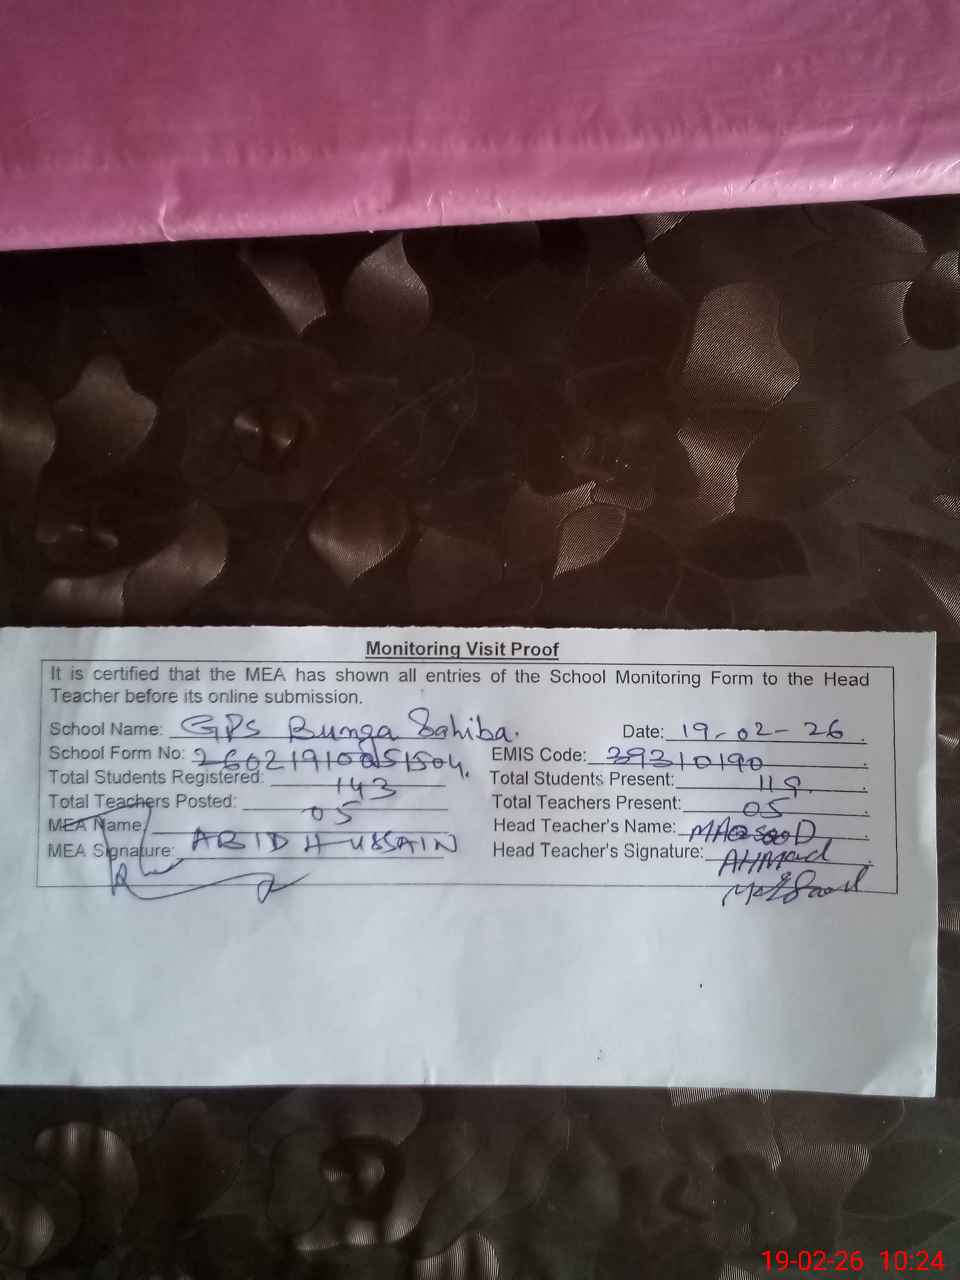 Monitoring Visit Proof
It is certified that the MEA has shown all entries of the School Monitoring Form to the Head
Teacher before its online submission.
School Name: GPS Bunga Sahiba. Date: 19-02-26
School Form No: EMIS Code: 39310190
Total Students Registered: 143 Total Students Present:
Total Teachers Posted: 05 Total Teachers Present: 05
MEA Name ABID HUSSAIN Head Teacher's Name: MAQSOOD
AHMad
MEA Signature: Head Teacher's Signature:
19-02-26 10:24